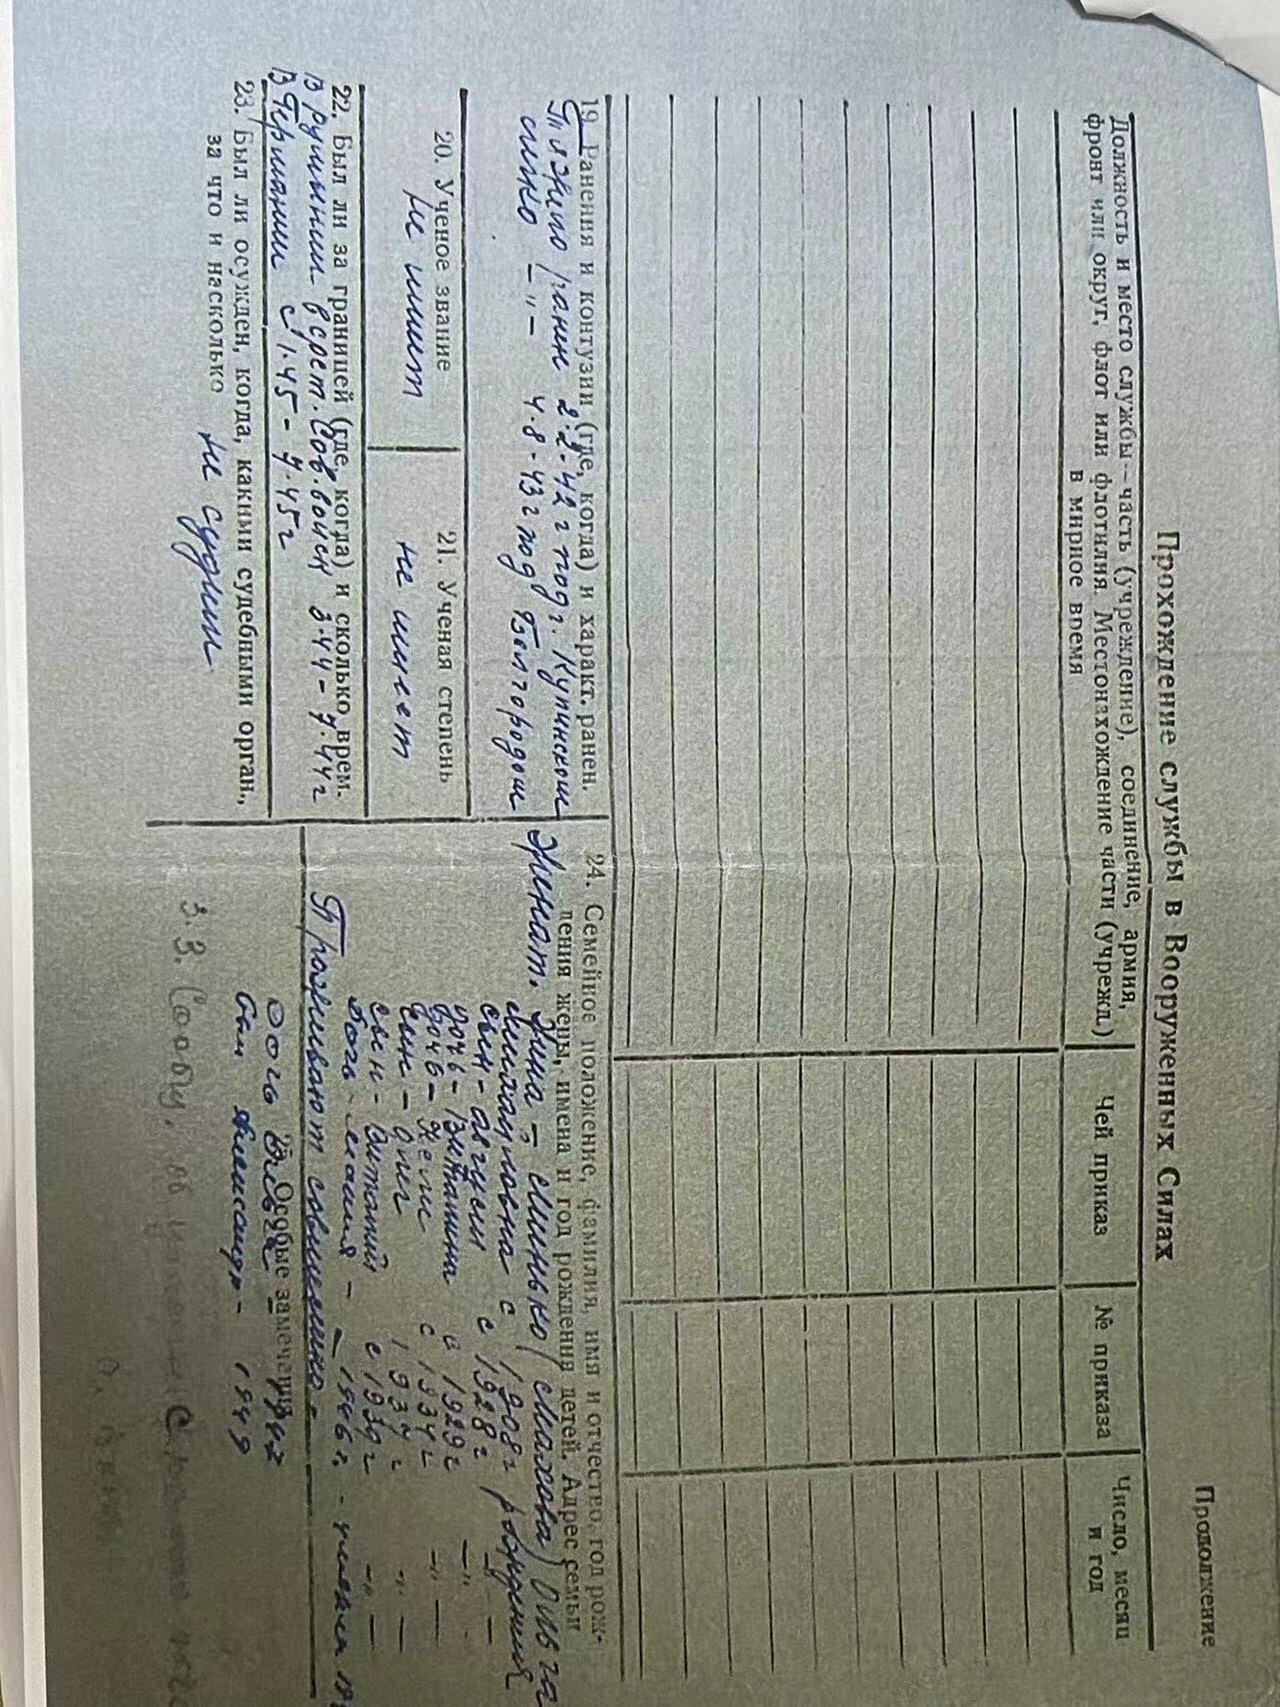 Продолжение
Прохождение службы в Вооруженных Силах
Должность и место службы — часть (учреждение), соединение, армия,
фронт или округ, флот или флотилия. Местонахождение части (учрежд.)
в мирное время
Чей приказ
№ приказа
Число, месяц
и год
19. Ранения и контузии (где, когда) и характ. ранен.
Тяжело ранен 2.2.42 г под г.
-"- 4.8.43 г под Белгородом
20. Ученое звание
не имеет
21. Ученая степень
не имеет
22. Был ли за границей (где, когда) и сколько врем.
в румынии в сост. Сов. войск 3.44 - 7.44 г
В Германии с 1.45 - 7.45 г
23. Был ли осужден, когда, какими судебными орган.,
за что и насколько
не судим
24. Семейное положение, фамилия, имя и отчество, год рож-
дения жены, имена и год рождения детей. Адрес семьи
Женат. Жена - Минько (Махова) Ольга
Михайловна с 1908 г рождения
сын - с 1928 г -"-
дочь - в 1929 г -"-
дочь - с 1934 г -"-
сын - Олег 1937 г -"-
сын - Виталий с 1939 г -"-
дочь - мария - 1946 г. -
Проживают совместно.
Особые замечания
дочь
сын Александр - 1949